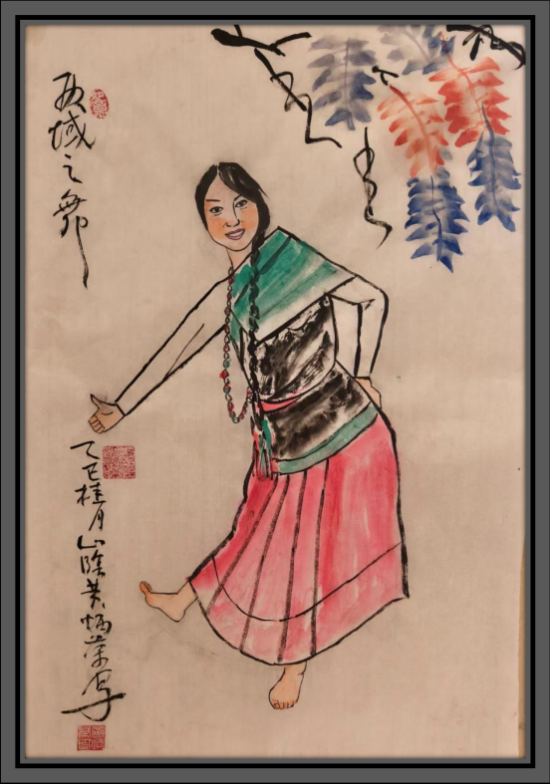 西域之舞
乙巳桂月山阴黄炳荣写